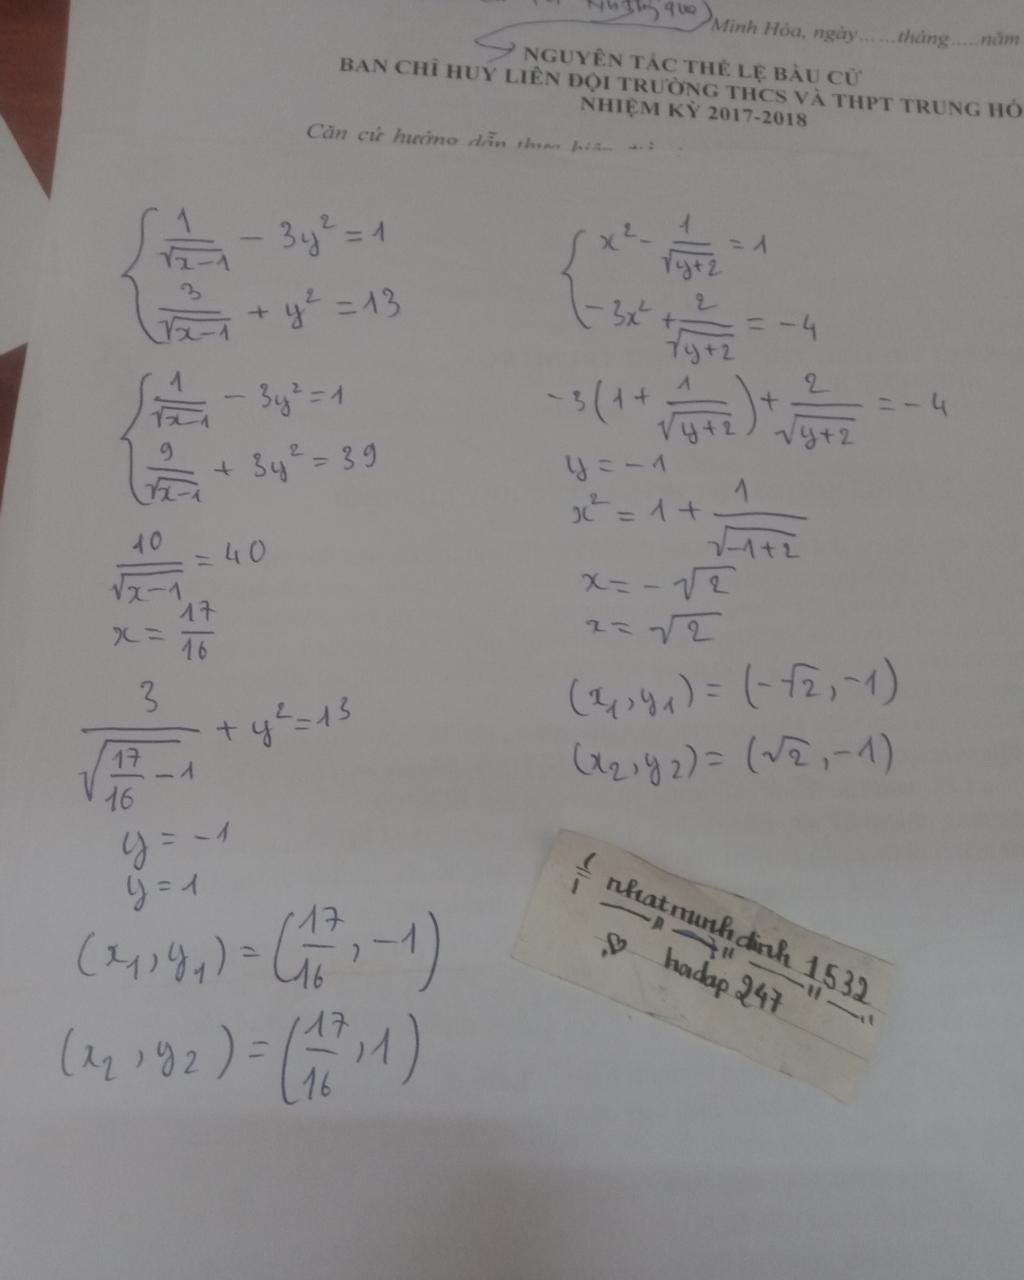 Minh Hòa, ngày......tháng.....năm
NGUYÊN TẮC THỂ LỆ BẦU CỬ
BAN CHỈ HUY LIÊN ĐỘI TRƯỜNG THCS VÀ THPT TRUNG HÓ
NHIỆM KỲ 2017-2018
Căn cứ hướng dẫn
{ 1/√(x-1) - 3y² = 1
3/√(x-1) + y² = 13
{ 1/√(x-1) - 3y² = 1
9/√(x-1) + 3y² = 39
10/√(x-1) = 40
x = 17/16
3/√(17/16 - 1) + y² = 13
y = -1
y = 1
(x₁, y₁) = (17/16, -1)
(x₂, y₂) = (17/16, 1)
{ x² - 1/√(y+2) = 1
-3x² + 2/√(y+2) = -4
-3(1 + 1/√(y+2)) + 2/√(y+2) = -4
y = -1
x² = 1 + 1/√(-1+2)
x = -√2
x = √2
(x₁, y₁) = (-√2, -1)
(x₂, y₂) = (√2, -1)
nhatminhdinh 1532
hadap 247